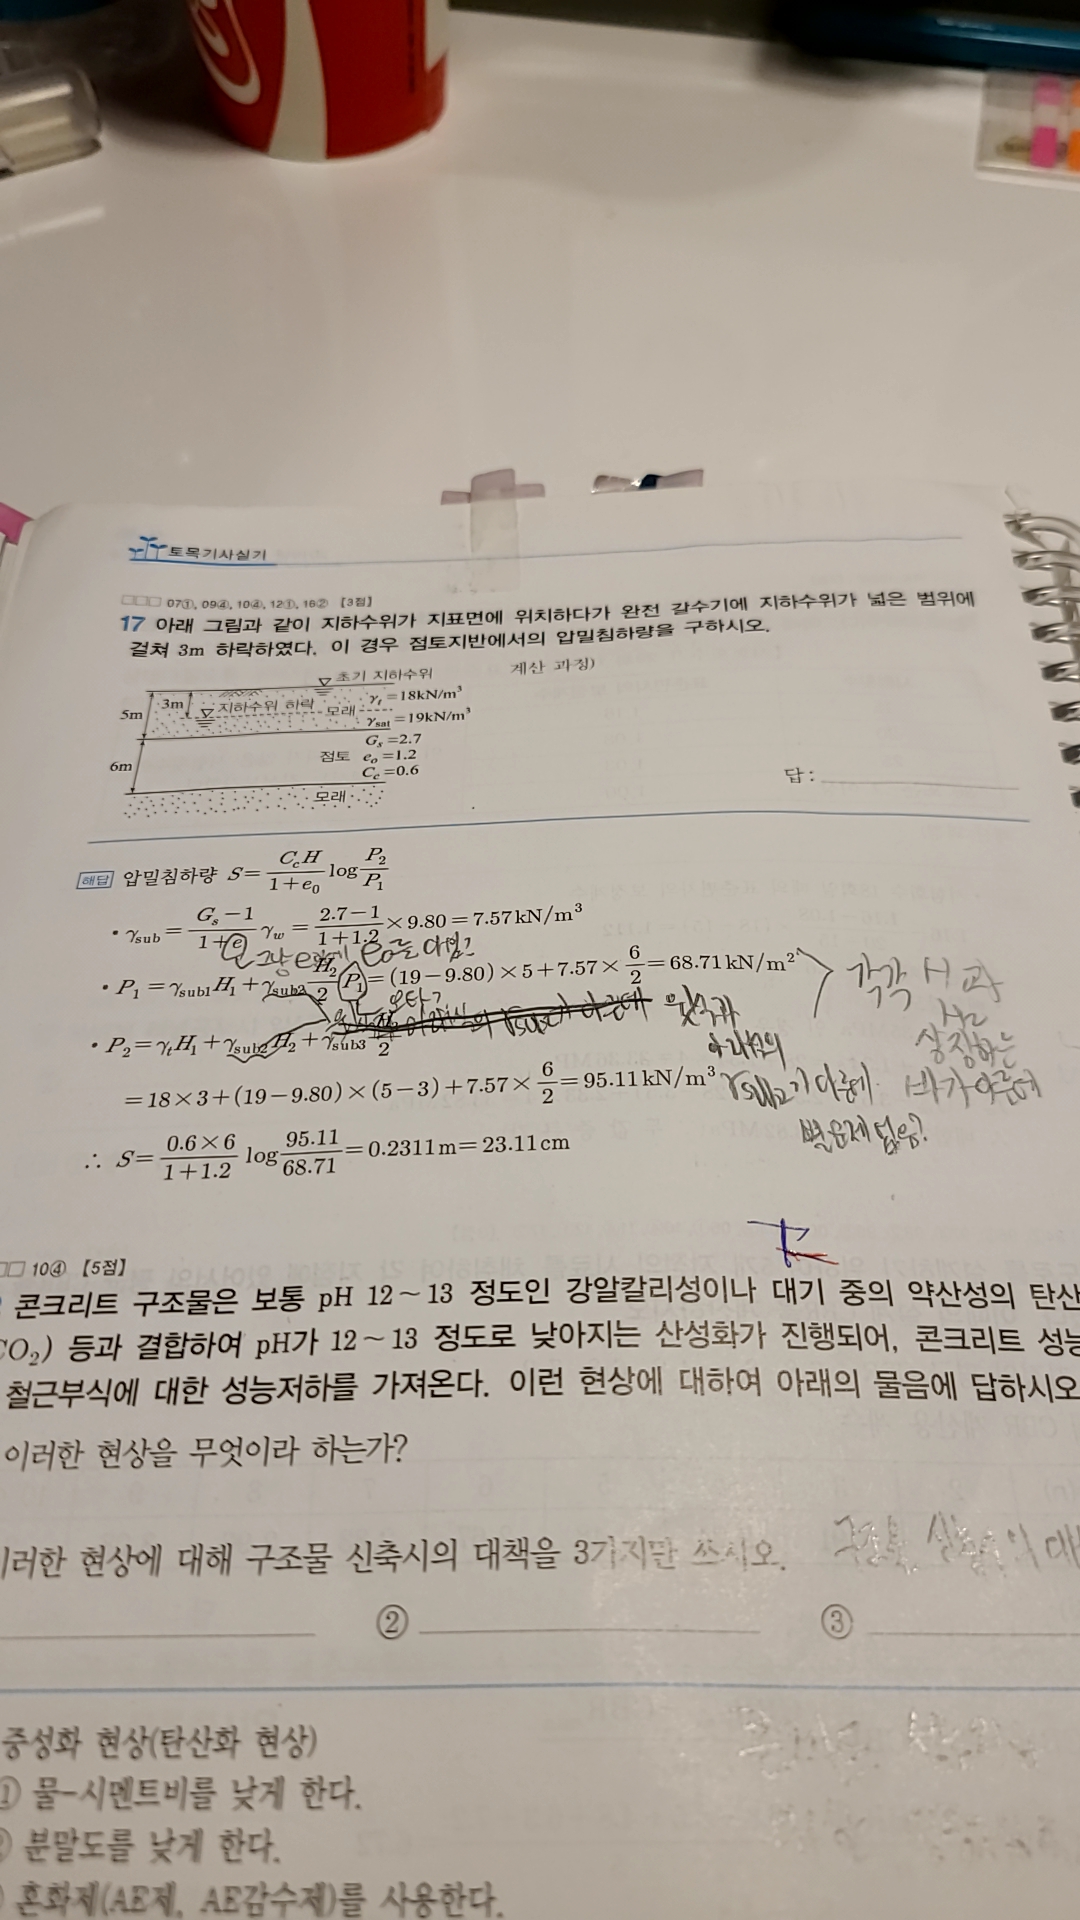 토목기사실기
□□□ 07①, 09④, 10④, 12①, 16② 【3점】
17 아래 그림과 같이 지하수위가 지표면에 위치하다가 완전 갈수기에 지하수위가 넓은 범위에
걸쳐 3m 하락하였다. 이 경우 점토지반에서의 압밀침하량을 구하시오.
초기 지하수위
계산 과정)
5m
3m
지하수위 하락
모래
γt=18kN/m³
γsat=19kN/m³
6m
점토
Gs=2.7
eo=1.2
Cc=0.6
모래
답 :
해답 압밀침하량 S= CcH/(1+e0) log P2/P1
• γsub = (Gs−1)/(1+e) γw = (2.7−1)/(1+1.2) ×9.80=7.57kN/m³
• P1=γsub1H1+γsub2 H2/2 P1=(19−9.80)×5+7.57×6/2=68.71kN/m²
오타?
• P2=γtH1+γsub2H2+γsub3 /2
=18×3+(19−9.80)×(5−3)+7.57×6/2=95.11kN/m³
윗식과
아래식의
γsub2가 다른데
각각 H1과
H2
상징하는
바가 다른데
별문제 없음?
∴ S= (0.6×6)/(1+1.2) log 95.11/68.71 =0.2311m=23.11cm
□□ 10④ 【5점】
콘크리트 구조물은 보통 pH 12~13 정도인 강알칼리성이나 대기 중의 약산성의 탄산
CO2) 등과 결합하여 pH가 12~13 정도로 낮아지는 산성화가 진행되어, 콘크리트 성능
철근부식에 대한 성능저하를 가져온다. 이런 현상에 대하여 아래의 물음에 답하시오
이러한 현상을 무엇이라 하는가?
이러한 현상에 대해 구조물 신축시의 대책을 3가지만 쓰시오.
②
③
중성화 현상(탄산화 현상)
① 물-시멘트비를 낮게 한다.
분말도를 낮게 한다.
혼화제(AE제, AE감수제)를 사용한다.